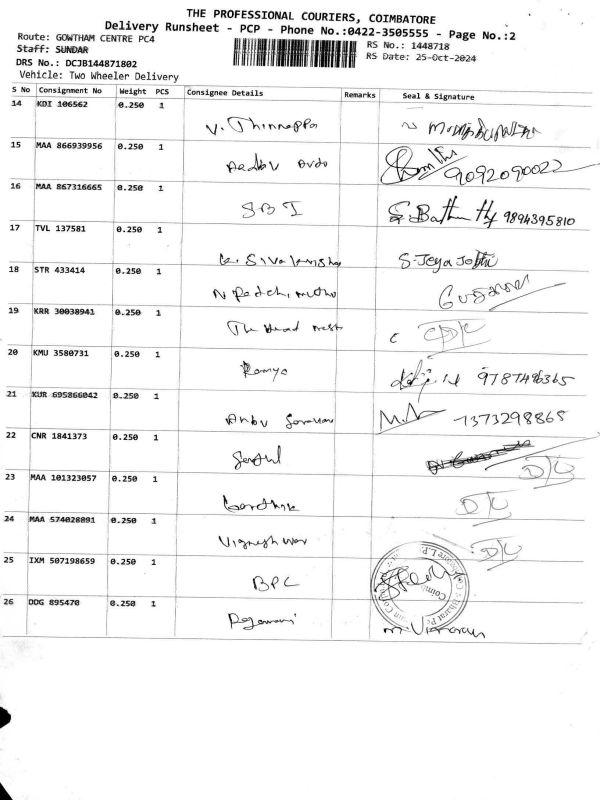 THE PROFESSIONAL COURIERS, COIMBATORE
Delivery Runsheet - PCP - Phone No.:0422-3505555 - Page No.:2
Route: GOWTHAM CENTRE PC4
RS No.: 1448718
Staff: SUNDAR
RS Date: 25-Oct-2024
DRS No.: DCJB144871802
Vehicle: Two Wheeler Delivery
S No Consignment No Weight PCS Consignee Details Remarks Seal & Signature
14 KDI 106562 0.250 1
V. Thinnappa
15 MAA 866939956 0.250 1
9092090022
16 MAA 867316665 0.250 1
SBI 9894395810
17 TVL 137581 0.250 1
K. Sivakrishna S. Jeya Jothi
18 STR 433414 0.250 1
19 KRR 30038941 0.250 1
The Head
20 KMU 3580731 0.250 1
Ramya 9787496365
21 KUR 695866042 0.250 1
Anbu Saravanan 7373298865
22 CNR 1841373 0.250 1
Senthil D/C
23 MAA 101323057 0.250 1
D/C
24 MAA 574028091 0.250 1
Vigneshwar D/C
25 IXM 507198659 0.250 1
BPC
26 DDG 895470 0.250 1